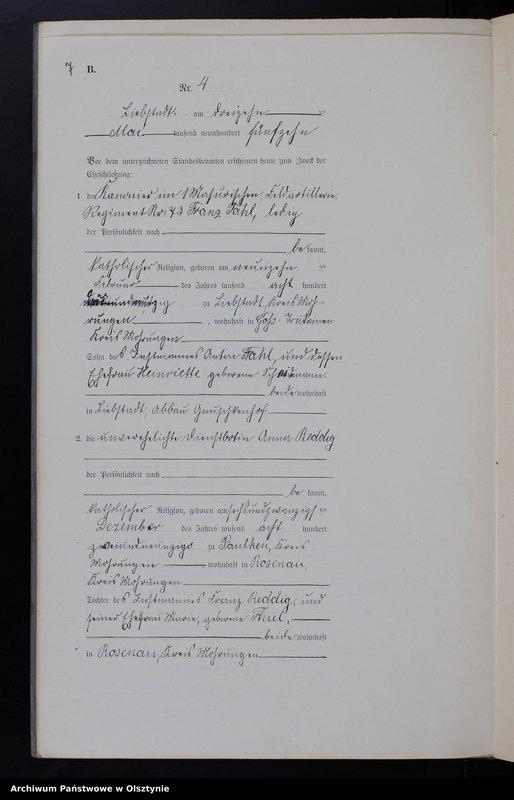 7 B.
Nr. 4
Liebstadt am dreizehn ten
Mai tausend neunhundert fünfzehn
Vor dem unterzeichneten Standesbeamten erschienen heute zum Zweck der
Eheschließung:
1. der Kanonier im 1 Masurischen Feldartillerie
Regiment Nr. 73 Franz Fahl, ledig
der Persönlichkeit nach
be kannt,
katholischer Religion, geboren am neunzehn ten
Februar des Jahres tausend acht hundert
zu Liebstadt, Kreis Moh-
rungen, wohnhaft in
Kreis Mohrungen
Sohn des Instmannes Anton Fahl, und dessen
Ehefrau Heinriette geborene
beide wohnhaft
in Liebstadt, Abbau
2. die unverehelichte Dienstbotin Anna Reddig
der Persönlichkeit nach
be kannt,
katholischer Religion, geboren am sechsundzwanzigst ten
Dezember des Jahres tausend acht hundert
zweiundneunzig zu Paulken, Kreis
Mohrungen, wohnhaft in Rosenau,
Kreis Mohrungen
Tochter des Instmannes Franz Reddig, und
seiner Ehefrau Marie, geborene Thiel,
beide wohnhaft
in Rosenau, Kreis Mohrungen
Archiwum Państwowe w Olsztynie